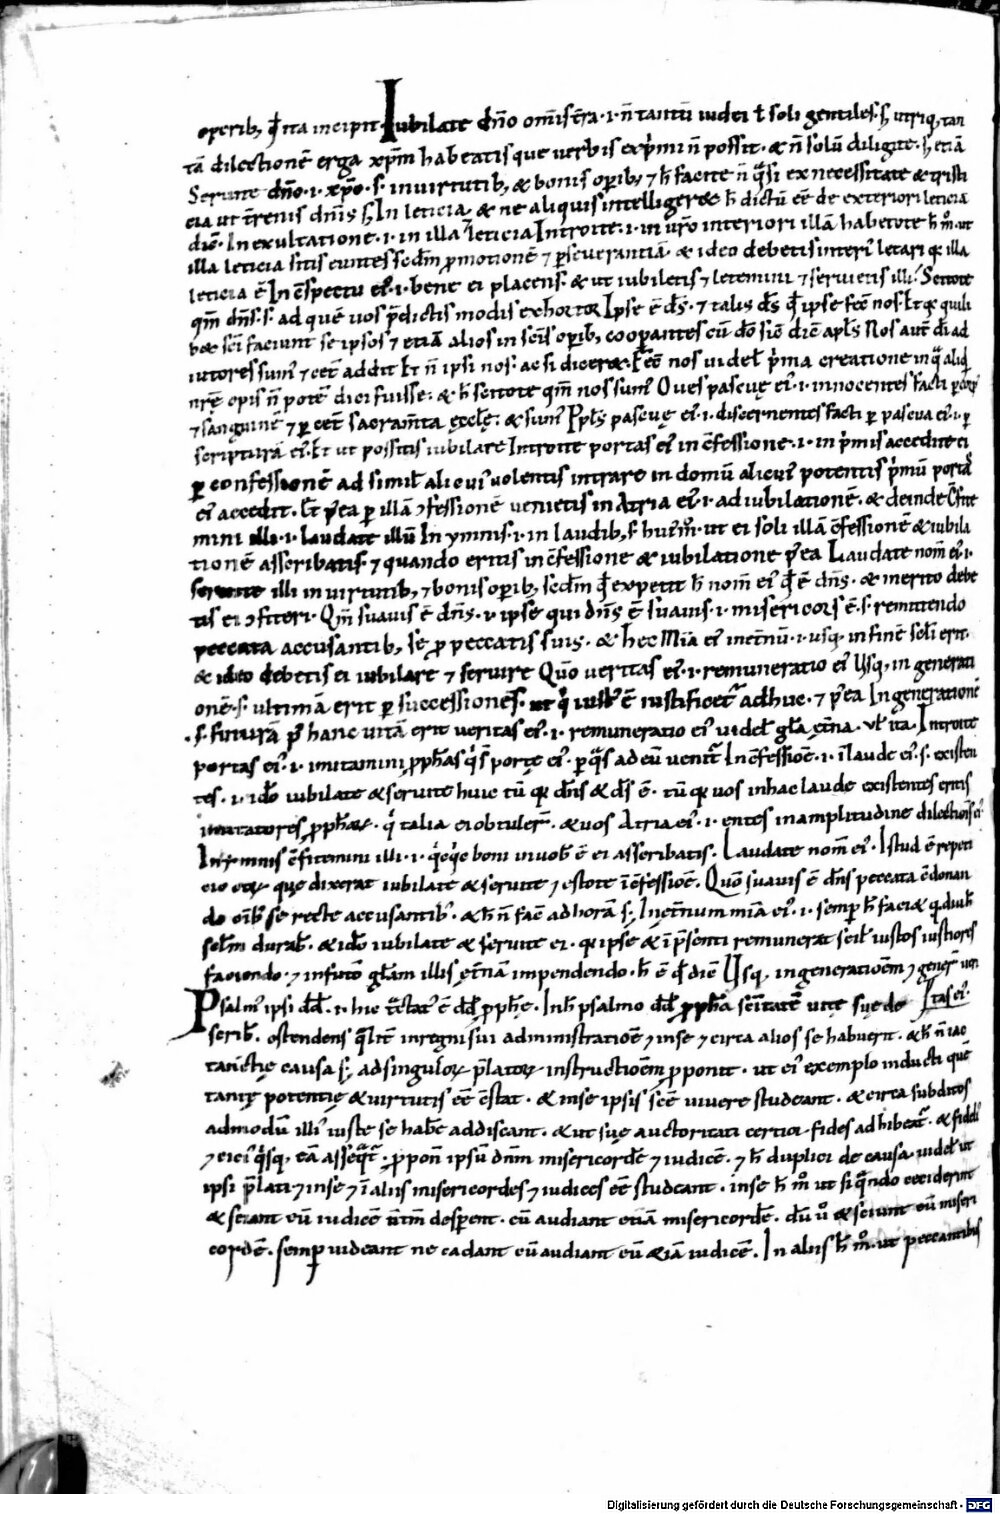 operib; qđ ita incipit. Iubilate dño om̃is t̃ra .i. ñ tantũ iudei ł soli gentiles. s; utriq; tan
tã dilectionẽ erga xp̃m habeatis que uerbis exp̃mi ñ possit. & ñ solũ diligite. s; etiã
Seruite dño .i. xp̃o. s. in uirtutib; & bonis op̃ib; & h̃ facite ñ q̃si ex necessitate & tristi
cia ut t̃renis dñis s; In leticia. & ne aliquis intelliger& h̃ dictũ eẽ de exteriori leticia
diẽ. In exultatione .i. in illa leticia Introite .i. in ur̃o interiori illã habetote h̃ m̊. ut
illa leticia sitis euntes scđm p̃motionẽ ⁊ p̱seuerantiã. & ideo debetis interi' letari q illa
leticia ẽ In c̃spectu ei' .i. bene ei placens. & ut iubiletis ⁊ letemini ⁊ seruietis illi. Scitote
qm̃ dñs. s. ad quẽ uos p̃dictis modis exhortor Ipse ẽ d̃s. ⁊ talis d̃s qđ ipse fec̃ nos
iutores sum' ⁊ cet̃ addit
nr̃ẽ opis ñ potẽ dici fuisse. & h̃ scitote qm̃ nos sum' Oues pascuę ei' .i. innocentes facti
⁊ sanguinẽ ⁊ p̱ cet̃ sacram̃ta ęccl̃ę. & sum' Ppl̃s pascuę ei' .i. discernentes facti p̱ pascua ei' .i. p̱
scripturã ei'. ł ut possitis iubilare Introite portas ei' in c̃fessione .i. in p̃mis accedite ei
p̱ confessionẽ ad simił alicui' uolentis intrare in domũ alicui' potentis p̃mũ portã
ei' accedit. ł p̃ea p̱ illã ɔfessionẽ uenietis in Atria ei' .i. ad iubilationẽ. & deinde C̃fite
mini illi .i. laudate illũ In ymnis .i. in laudib; s. hui' m̊. ut ei soli illã c̃fessionẽ & iubila
tionẽ asscribatis. ⁊ quando eritis in c̃fessione & iubilatione p̃ea Laudate nom̃ ei' .i.
seruite illi in uirtutib; ⁊ bonis op̃ib; scđm qđ expetit h̃ nom̃ ei' qđ ẽ dñs. & merito debe
tis ei ɔfiteri. Qm̃ suauis ẽ dñs. .i. ipse qui dñs ẽ suauis .i. misericors ẽ. s. remittendo
peccata accusantib; se p̱ peccatis suis. & hec Mĩa ei' in et̃nũ .i. usq; in finẽ scłi erit.
& ideo debetis ei iubilare ⁊ seruire Qm̃o ueritas ei' .i. remuneratio ei' Usq; in generati
onẽ. s. ultimã erit p̱ successiones. ut q̃ iust' ẽ iustificet̃ adhuc. ⁊ p̃ea In generationẽ
s. futurã p̃ hanc uitã erit ueritas ei' .i. remuneratio ei' uideł gl̃a ęt̃na. Vł ita. Introite
portas ei' .i. imitamini p̱phãs
tes. .i. id̃o iubilate & seruite huic tũ q dñs & d̃s ẽ. tũ q uos in hac laude existentes eritis
imitatores p̱phãꝝ. q̃ talia ei obtuler̃. & uos Atria ei' .i. entes in amplitudine dilectionis ei'
In ymnis c̃fitemini illi .i. boni in uob' ẽ ei asscribatis. Laudate nom̃ ei'. Istud ẽ repeti
cio eoꝝ que dixerat iubilate & seruite ⁊ estote ĩ c̃fessiõe. Qm̃o suauis ẽ dñs peccata c̃donan
do om̃ib' se recte accusantib'. & h̃ ñ fac̃ ad horam s; In et̃num mĩa ei' .i. semp̱ h̃ faci&
& id̃o iubilate & seruite ei. q ipse & ĩ p̃senti remunerat scił iustos iustiores
faciendo. ⁊ in futuro gl̃am illis ęt̃nam impendendo. h̃ ẽ qđ diẽ Usq; in generatiõem ⁊ gener̃ uer
Psalm' ipsi đđ. .i. hic t̃ctat' ẽ đđ p̱phẽ. In h̃ psalmo đđ p̱phã sc̃itatẽ uite sue de
scrib'. ostendens qlit̃ in regni sui administratiõe ⁊ in se ⁊ circa alios se habuerit. & h̃ ñ iac
tantię causa s; ad singuloꝝ p̃latoꝝ instructiõem p̱ponit. ut ei' exemplo inducti quẽ
tantę potentię & uirtutis eẽ c̃stat. & in se ipsis scẽ uiuere studeant. & circa subditos
admodũ illi' iuste se habẽ addiscant. & ut sue auctoritati certior fides adhibeat̃. & fidel'
p̱pon̄ ipsũ dñm misericordẽ ⁊ iudicẽ. ⁊ h̃ duplici de causa. uideł ut
ipsi p̃lati ⁊ in se ⁊ ĩ aliis misericordes ⁊ iudices eẽ studeant. in se h̃ m̊ ut si q̃ndo ceciderint
& sciant eũ iudicẽ ñ tm̃ desp̱ent. cũ audiant etiã misericordẽ. dũ ů & sciunt eũ miseri
cordẽ. semp̱ uideant ne cadant cũ audiant eũ & iã iudicẽ. In aliis h̃ m̊. ut peccantibus
Digitalisierung gefördert durch die Deutsche Forschungsgemeinschaft - DFG